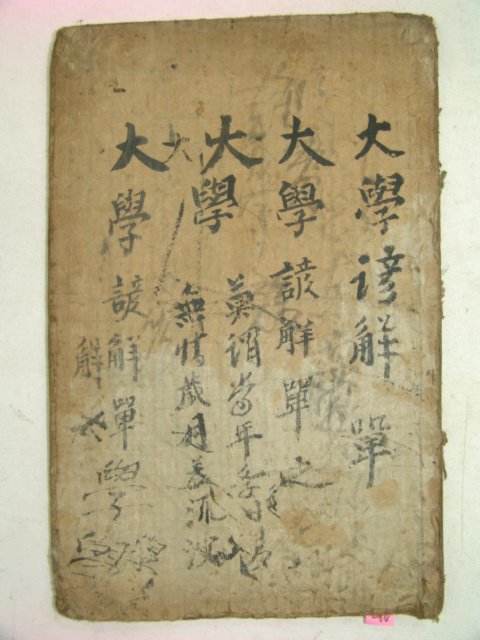 大學諺解單
大學諺解單之
大學
莫謂當年學日
大
無情歲月若流
大學諺解單學
解